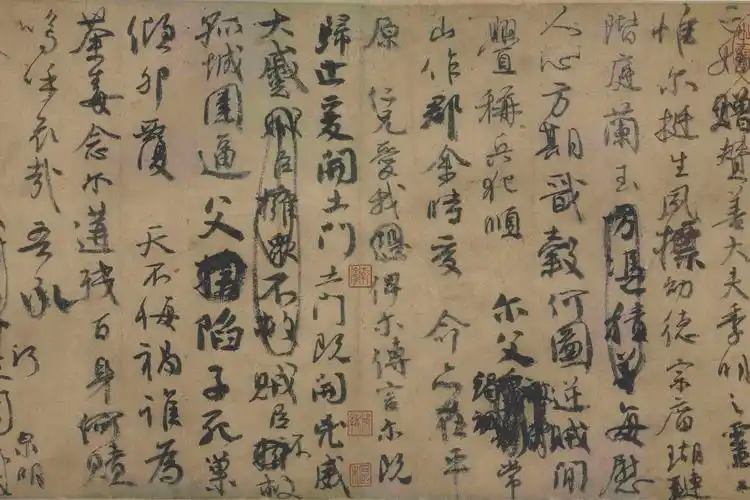 姪贈贊善大夫季明之靈
惟尔挺生夙標幼德宗廟瑚璉
階庭蘭玉方憑積善每慰
人心方期戩穀何圖逆賊閒
舋稱兵犯順 尔父竭誠常
山作郡余時受 命亦在平
原仁兄愛我俾尔傳言尔既
歸止爰開土門土門既開凶威
大蹙賊臣擁眾不救賊臣不救
孤城圍逼父陷子死巢
傾卵覆 天不悔禍誰為
荼毒念尔遘殘百身何贖
嗚呼哀哉吾承
泉明